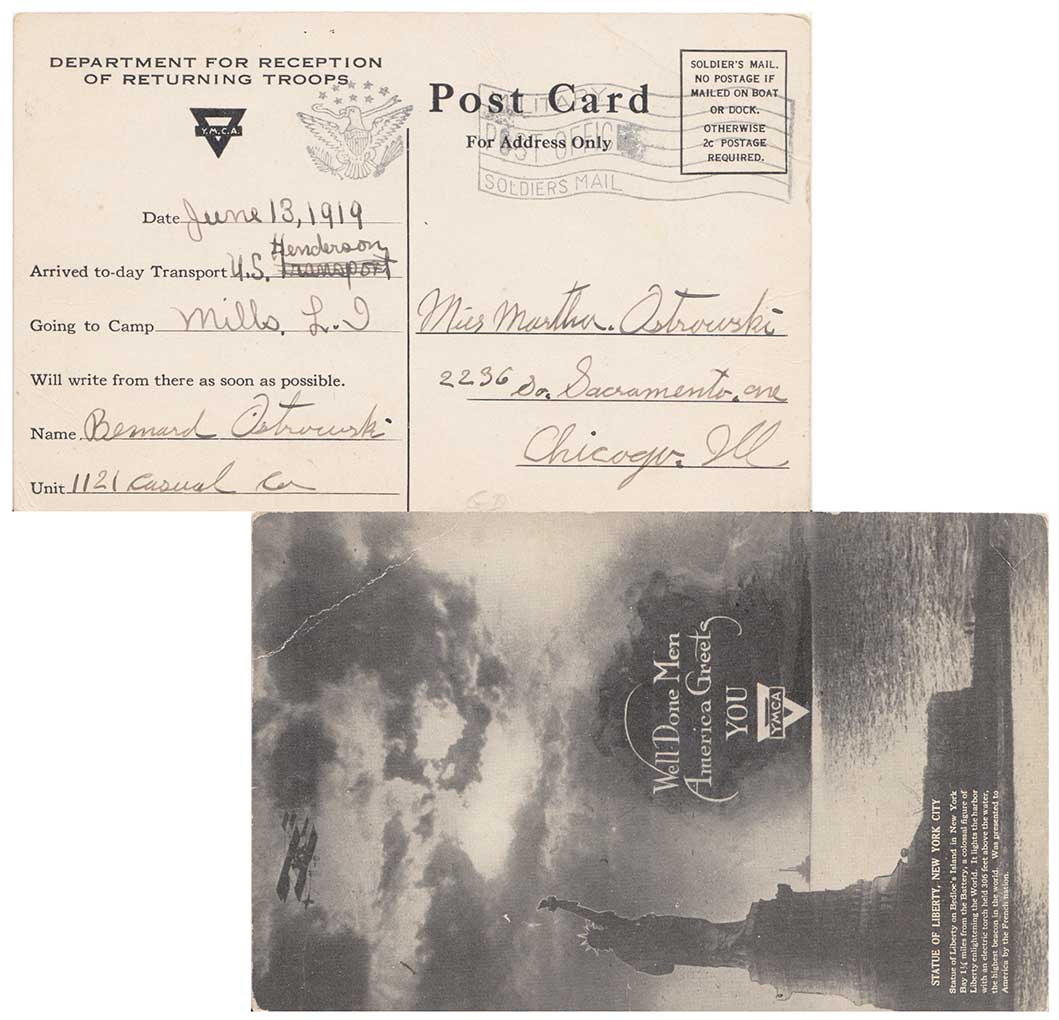 DEPARTMENT FOR RECEPTION
OF RETURNING TROOPS
Y.M.C.A.
Date June 13, 1919
Henderson
Arrived to-day Transport U.S. Transport
Going to Camp Mills, L.I
Will write from there as soon as possible.
Name Bernard Ostrowski
Unit 1121 Casual Co
Post Card
For Address Only
MILITARY
POST OFFICE
SOLDIERS MAIL
SOLDIER'S MAIL.
NO POSTAGE IF
MAILED ON BOAT
OR DOCK.
OTHERWISE
2c POSTAGE
REQUIRED.
Miss Martha Ostrowski
2236 So. Sacramento. ave
Chicago. Ill
Well Done Men
America Greets
YOU
YMCA
STATUE OF LIBERTY, NEW YORK CITY
Statue of Liberty on Bedloe's Island in New York
Bay 1¼ miles from the Battery, a colossal figure of
Liberty enlightening the World. It lights the harbor
with an electric torch held 306 feet above the water,
the highest beacon in the world. Was presented to
America by the French nation.